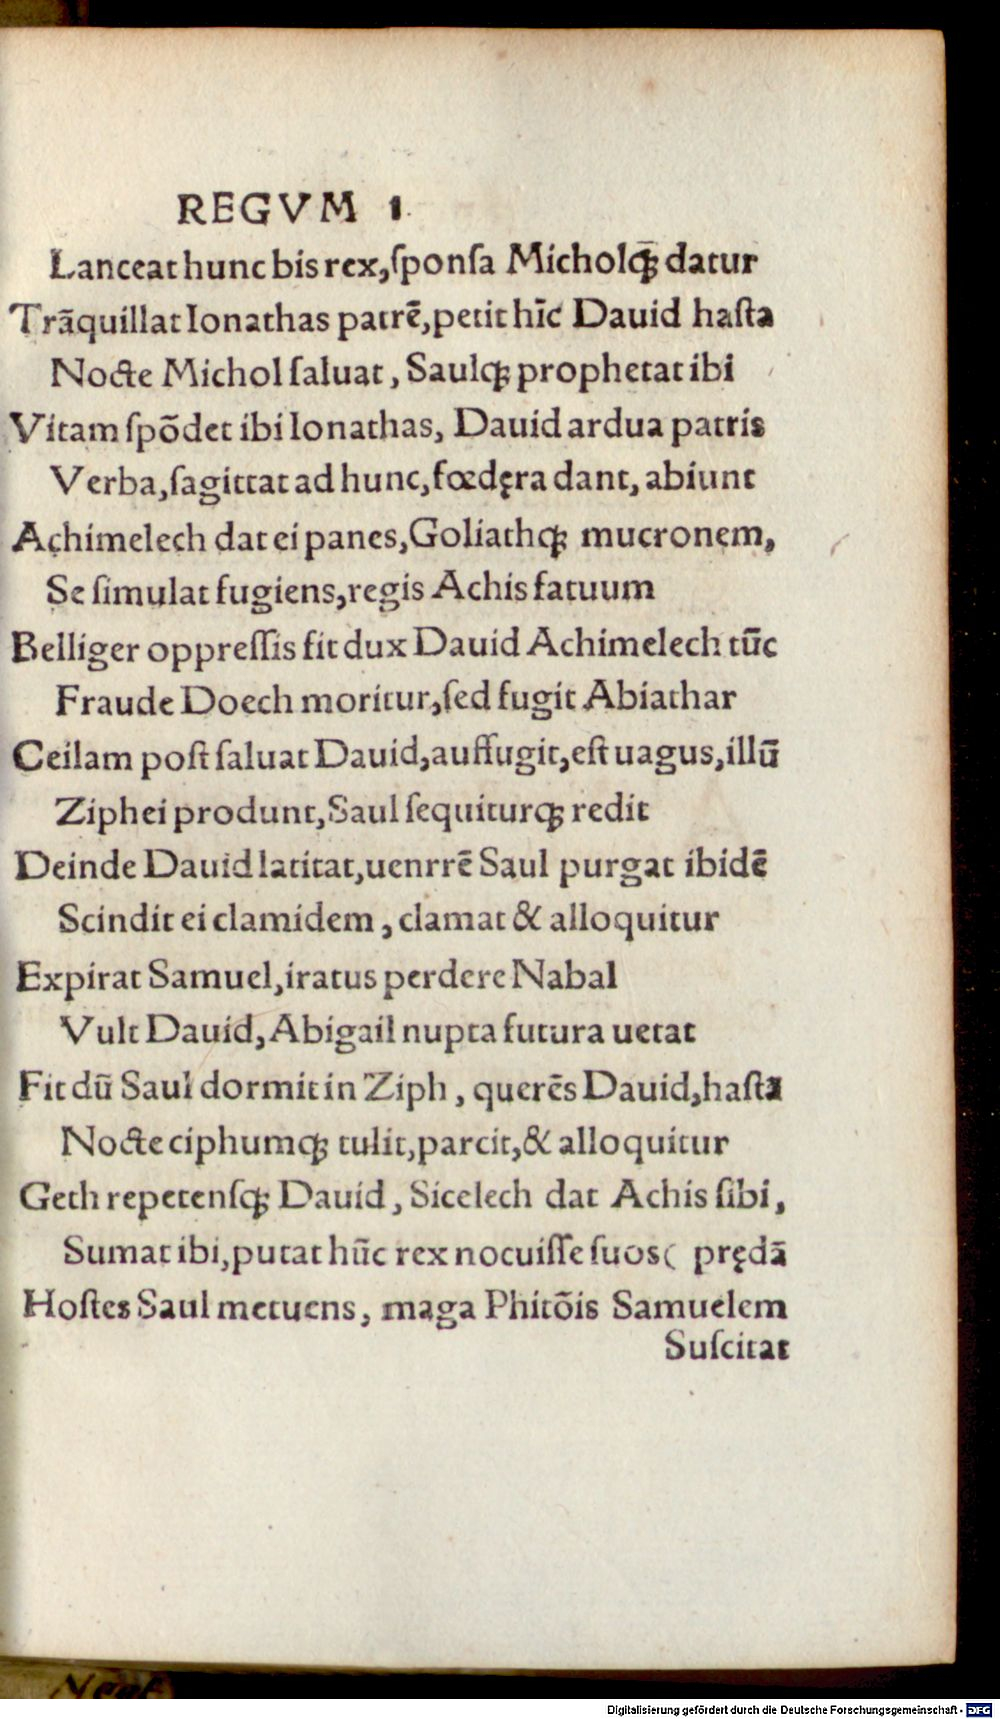 REGVM 1
Lanceat hunc bis rex,ſponſa Micholq̃ꝫ datur
Trãquillat Ionathas patrẽ,petit hĩc Dauid haſta
Nocte Michol ſaluat, Saulqꝫ prophetat ibi
Vitam ſpõdet ibi Ionathas, Dauid ardua patris
Verba,ſagittat ad hunc,fœdęra dant, abiunt
Achimelech dat ei panes,Goliathqꝫ mucronem,
Se ſimulat fugiens,regis Achis fatuum
Belliger oppreſſis fit dux Dauid Achimelech tũc
Fraude Doech moritur,ſed fugit Abiathar
Ceilam poſt ſaluat Dauid,auffugit,eſt uagus,illũ
Ziphei produnt,Saul ſequiturqꝫ redit
Deinde Dauid latitat,uenrrẽ Saul purgat ibidẽ
Scindit ei clamidem, clamat & alloquitur
Expirat Samuel,iratus perdere Nabal
Vult Dauid,Abigail nupta futura uetat
Fit dũ Saul dormit in Ziph, querẽs Dauid,haſta
Nocte ciphumqꝫ tulit,parcit,& alloquitur
Geth repetenſqꝫ Dauid, Sicelech dat Achis ſibi,
Sumat ibi,putat hũc rex nocuiſſe ſuos( prędã
Hoſtes Saul metuens, maga Phitõis Samuelem
Suſcitat
Neef
Digitalisierung gefördert durch die Deutsche Forschungsgemeinschaft - DFG